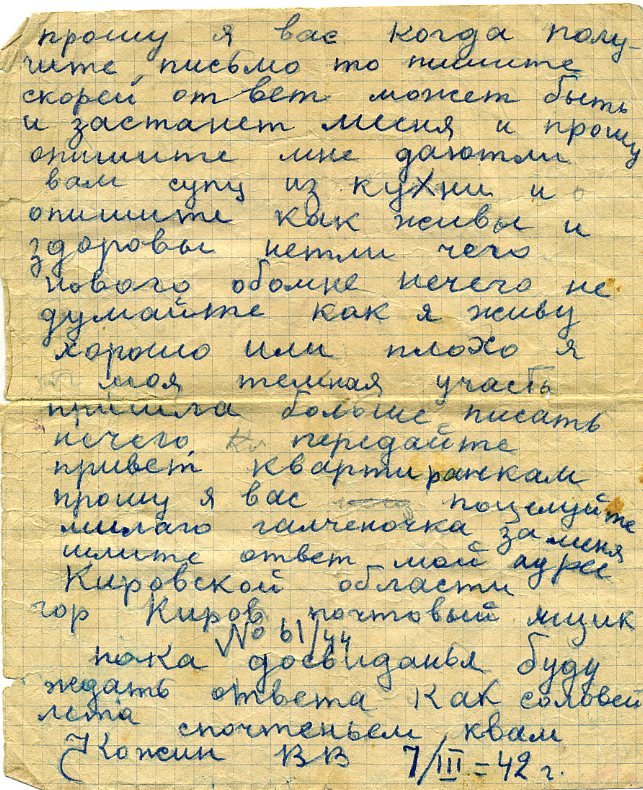 прошу я вас когда полу-
чите письмо то пишите
скорей ответ может быть
и застанет месня и прошу
опишите мне даютли
вам супу из кухни и
опишите как живы и
здоровы нетли чего
нового обомне нечего не
думайте как я живу
хорошо или плохо я
моя темная участь
пришла больше писать
нечего передайте
привет квартиранкам
прошу я вас поцелуйте
милаго галченочка за меня
шлите ответ мой адрес
Кировской области
гор Киров почтовый ящик
№ 61/44
пока досвиданья буду
ждать ответа как соловей
лета
спочтеньем квам
Кожин ВВ 7/III=42 г.